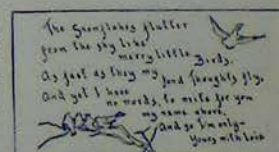 The Snowflakes flutter
from the sky like
merry little birds.
As fast as they my fond Thoughts fly,
And yet I have
no words, to write for you
my name above,
And so I'm only—
Yours with love